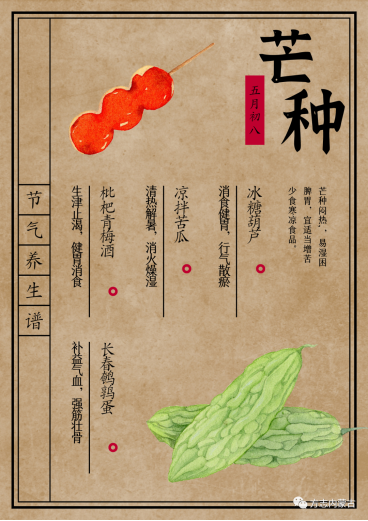 芒种
五月初八
芒种闷热、易湿困
脾胃，宜适当增苦
少食寒凉食品。
冰糖葫芦
消食健胃，行气散瘀
凉拌苦瓜
清热解暑，消火燥湿
枇杷青梅酒
生津止渴，健胃消食
长春鹌鹑蛋
补益气血，强筋壮骨
节气养生谱
方志内蒙古